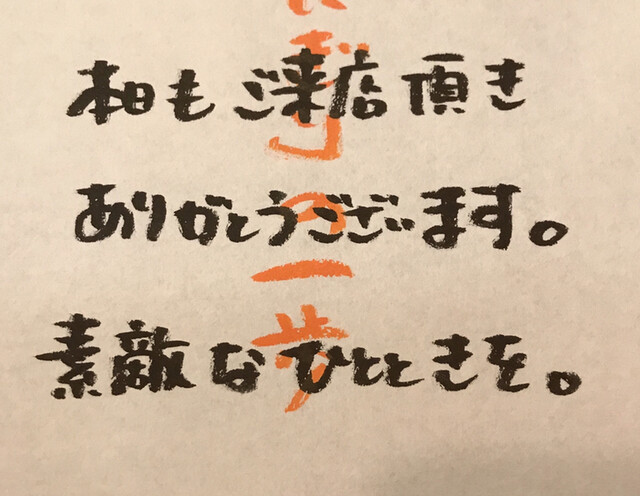 本日もご来店頂き
ありがとうございます。
素敵なひとときを。
の一歩